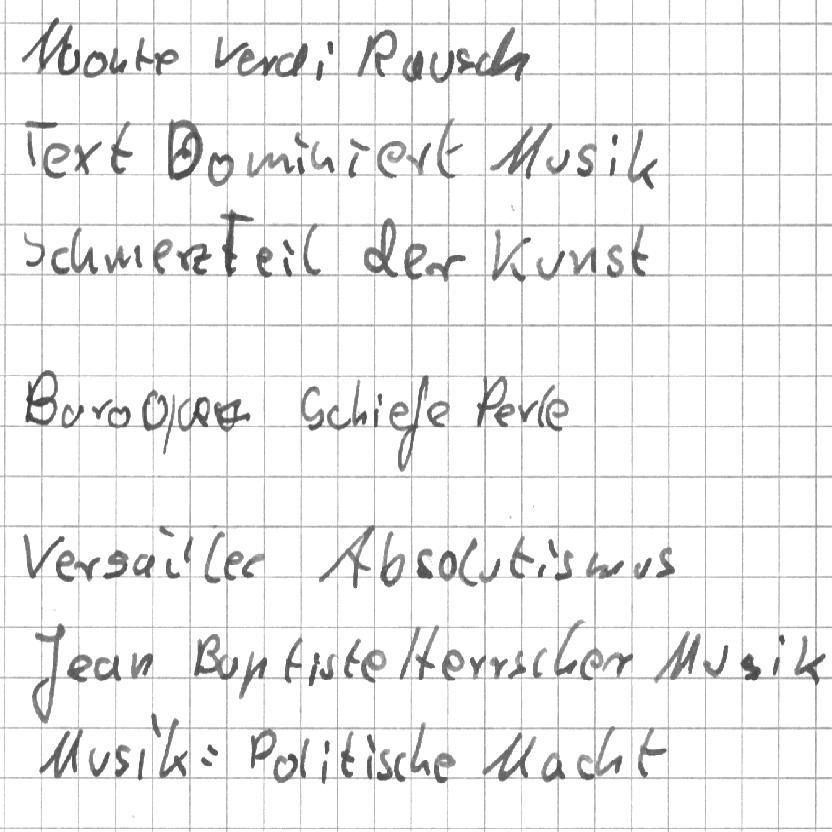 Monte Verdi Rausch
Text Dominiert Musik
Schmerz Teil der Kunst
Schiefe Perle
Versailles Absolutismus
Jean Baptiste Herrscher Musik
Musik = Politische Macht